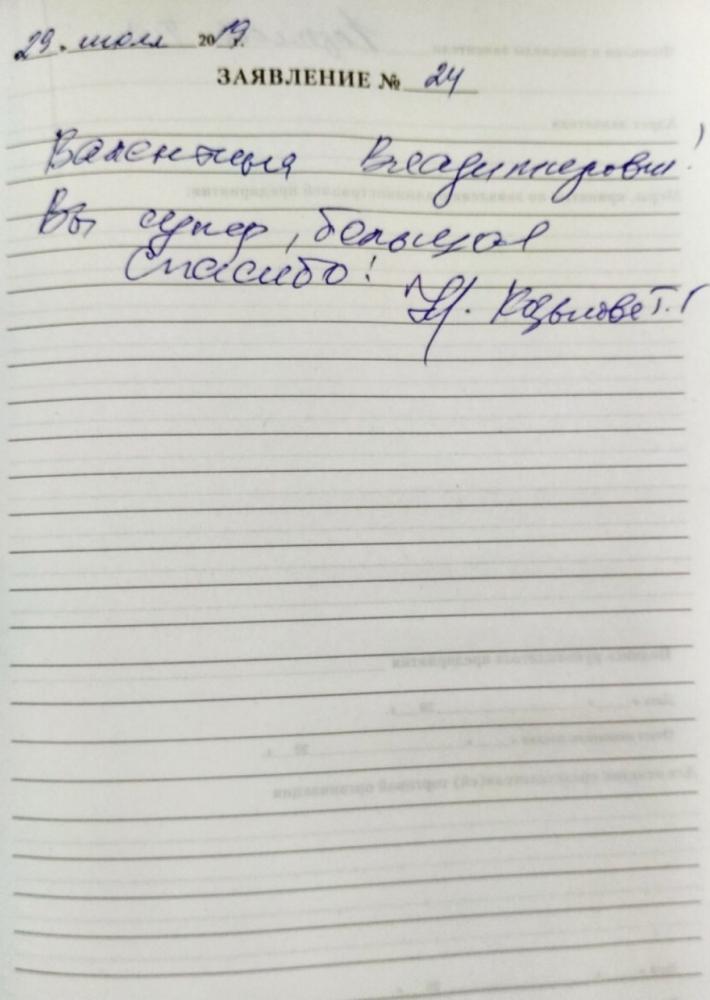 29. июля 2019.
ЗАЯВЛЕНИЕ № 24
Валентина Владимировна!
Вы супер, большое
Спасибо!